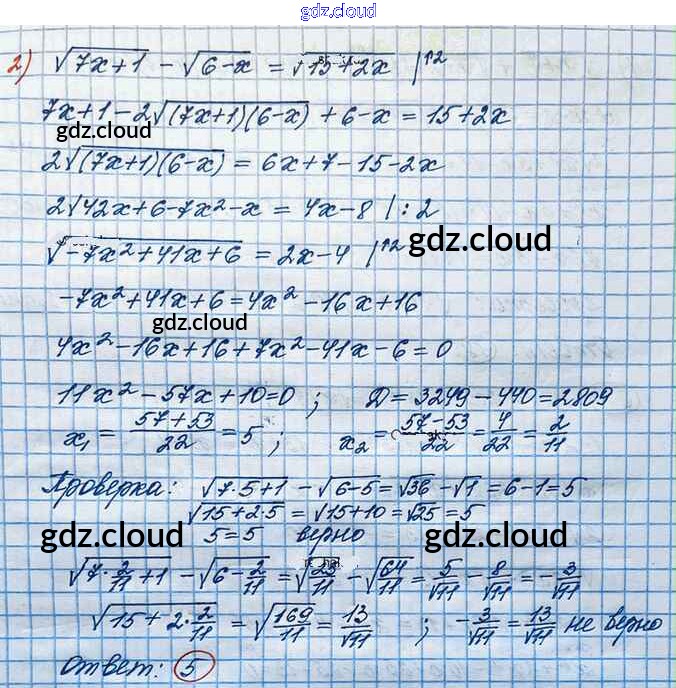 gdz.cloud
2) √(7x+1) - √(6-x) = √(15+2x) |↑2
7x+1-2√((7x+1)(6-x)) + 6-x = 15+2x
gdz.cloud
2√((7x+1)(6-x)) = 6x+7-15-2x
gdz.cloud
2√(42x+6-7x²-x) = 4x-8 | : 2
√(-7x²+41x+6) = 2x-4 |↑2
gdz.cloud
-7x²+41x+6 = 4x²-16x+16
gdz.cloud
4x²-16x+16+7x²-41x-6=0
11x²-57x+10=0 ; D = 3249-440=2809
x₁ = (57+53)/22 = 5 ; x₂ = (57-53)/22 = 4/22 = 2/11
Проверка: √(7·5+1) - √(6-5) = √36 - √1 = 6-1=5
√(15+2·5) = √(15+10) = √25 = 5
5=5 верно
gdz.cloud gdz.cloud
√(7·2/11+1) - √(6-2/11) = √(25/11) - √(64/11) = 5/√11 - 8/√11 = -3/√11
√(15+2·2/11) = √(169/11) = 13/√11 ; -3/√11 = 13/√11 не верно
Ответ: 5
gdz.cloud gdz.cloud